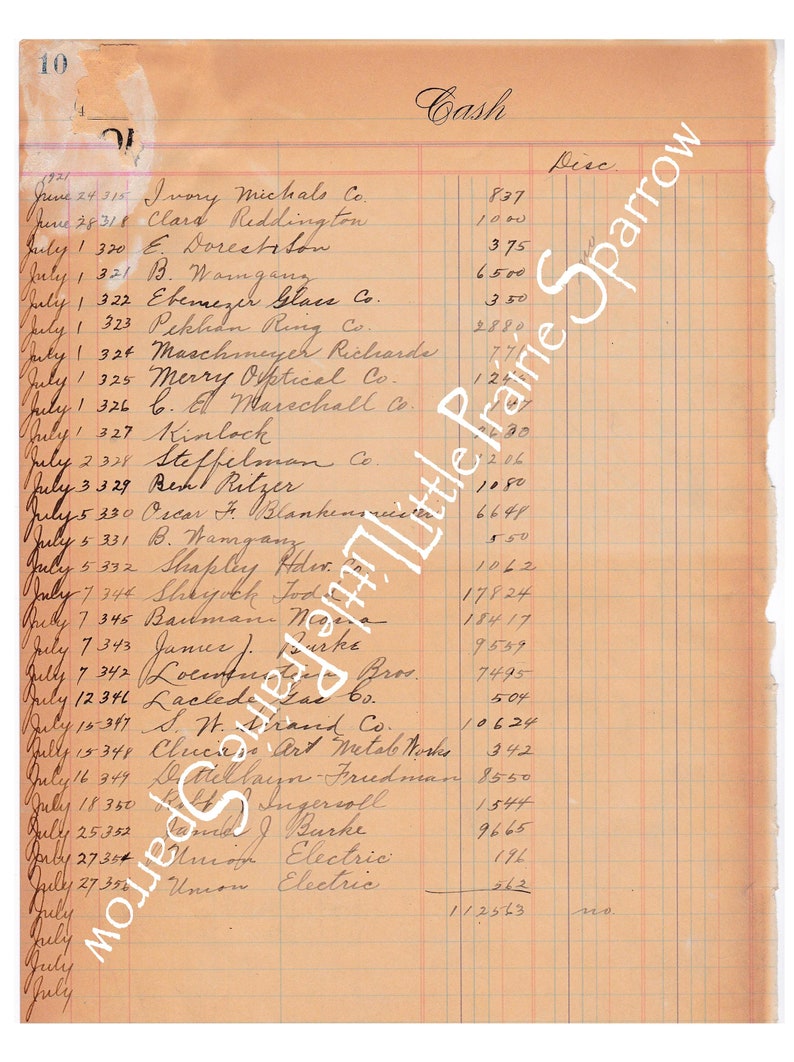 10
4
Cash
Disc.
1921
June 24 315 Ivory Michals Co. 837
June 28 318 Clara Reddington 1000
July 1 320 E. Dorest & Son 375
July 1 321 B. Wamganz 6500
July 1 322 Ebenezer Glass Co. 350
July 1 323 Pekhan Ring Co. 2880
July 1 324 Maschmeyer Richards
July 1 325 Merry Optical Co.
July 1 326 C. E. Marschall Co.
July 1 327 Kinlock
July 2 328 Steffelman Co. 1206
July 3 329 Ben Ritzer 1080
July 5 330 Oscar F. Blankenmeister 6648
July 5 331 B. Wamganz 550
July 5 332 Shapley Hdw. Co. 1062
July 7 344 Shryock Todd 17824
July 7 345 Baumann 18417
July 7 343 James J. Burke 9559
July 7 342 Bros. 7495
July 12 346 Laclede Gas Co. 504
July 15 347 S. W. Strand Co. 10624
July 15 348 Chicago Art Metal Works 342
July 16 349 Dettelbaum-Friedman 8550
July 18 350 Ingersoll 1544
July 25 352 James J Burke 9665
July 27 354 Union Electric 196
July 27 356 Union Electric 562
July 112563 no.
July
July
July
Little Prairie Sparrow
Little Prairie Sparrow